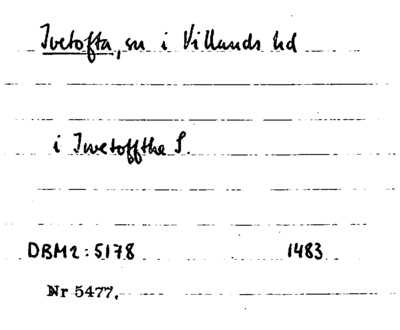 Ivetofta, sn i Villands hd
i Iwetoffthe S.
DBM2:5178 1483
Nr 5477.